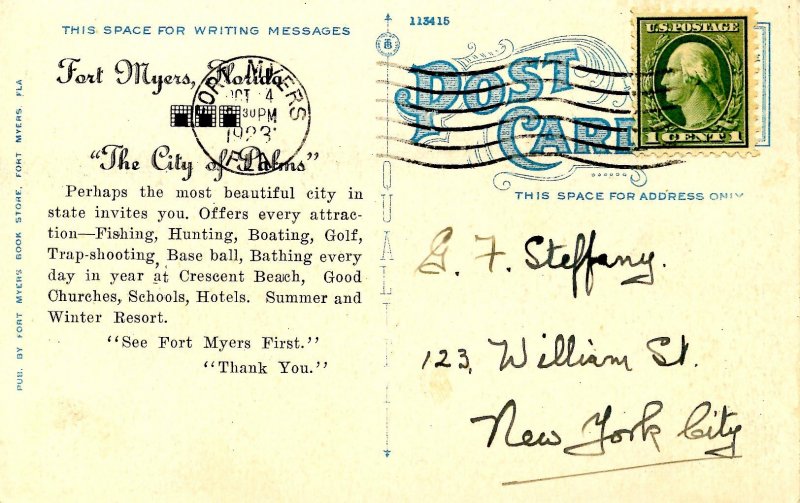 THIS SPACE FOR WRITING MESSAGES
Fort Myers, Florida
"The City of Palms"
Perhaps the most beautiful city in
state invites you. Offers every attrac-
tion—Fishing, Hunting, Boating, Golf,
Trap-shooting, Base ball, Bathing every
day in year at Crescent Beach, Good
Churches, Schools, Hotels. Summer and
Winter Resort.
"See Fort Myers First."
"Thank You."
PUB. BY FORT MYERS BOOK STORE, FORT MYERS FLA
FORT MYERS
OCT 4
30PM
1923
FLA
113415
POST
CARD
U.S. POSTAGE
1 CENT 1
THIS SPACE FOR ADDRESS ONLY
G. F. Steffany.
123, William St.
New York City